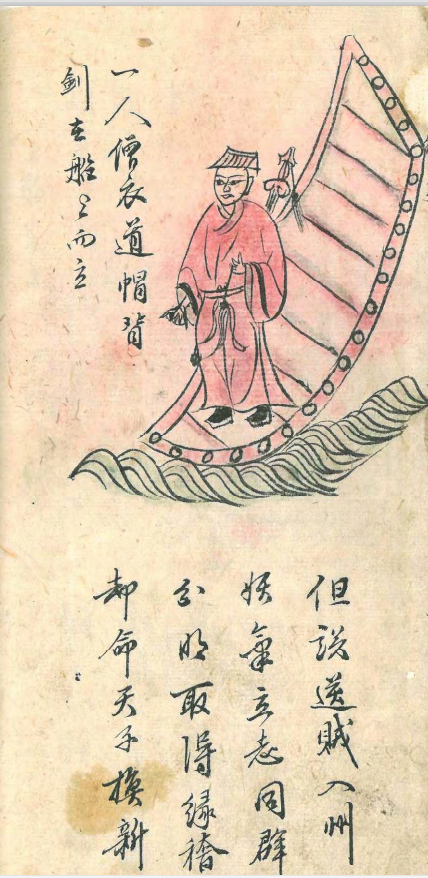 一人僧衣道帽背
劍在船上而立
但說送賊入州
妖氣立志同群
分明取得緣
却命天子換新